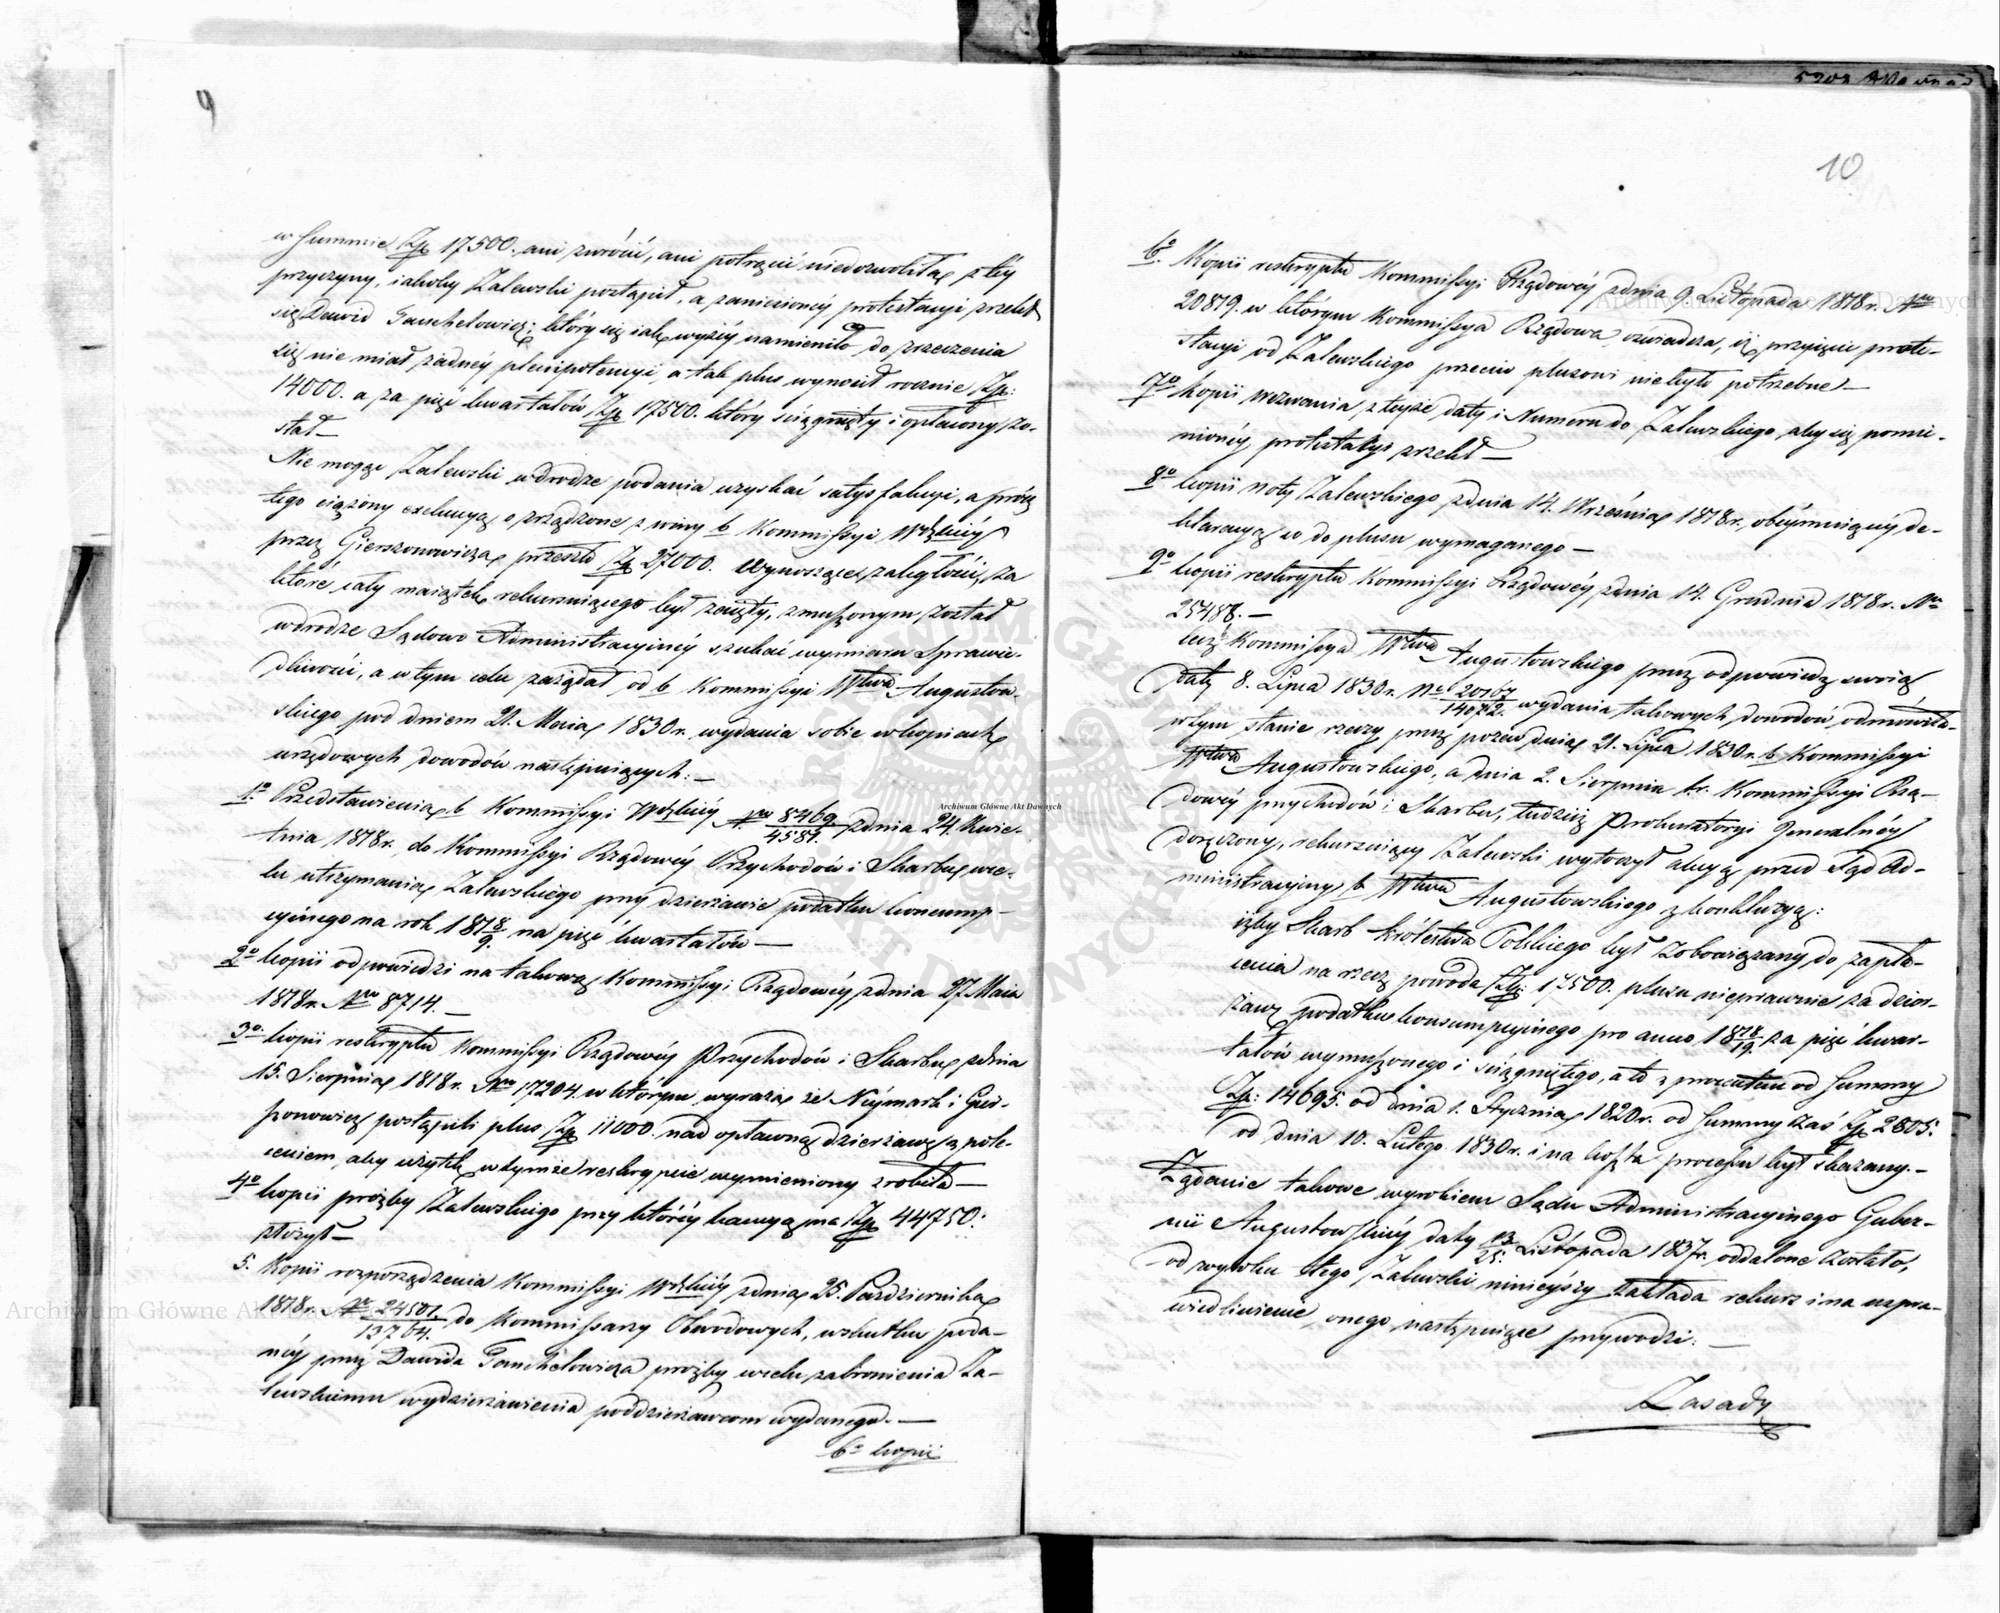 9
w Summie Zp 17500. ani zwrócić, ani potrącić niedozwoliła, z téy
przyczyny, iakoby Zalewski postąpił, a zaniesionéy protestacyi zrzekł
się Dawid Janchelowicz; który się iak wyżéy namieniło do zrzeczenia
się nie miał żadnéy plenipotencyi, a tak plus wynosił rocznie Zp:
14000. a za pięć kwartałów Zp 17500. który ściągnięty i opłacony zo-
stał —
Nie mogąc Zalewski w drodze podania uzyskać satysfakcyi, a prócz
tego ciążony exekucyą o zrządzone z winy b. Kommissyi Wdzkiéy
przez Gierszonowicza przeszło Zp 27000. wynoszące zaległości, za
które cały maiątek rekursuiącego był zaięty, zmuszonym został
w drodze Sądowo Administracyinéy szukać wymiaru Sprawie-
dliwości, a w tym celu zażądał od b. Kommissyi Wtwa Augustow-
skiego pod dniem 21. Maia 1830 r. wydania sobie w kopiach
urzędowych dowodów następuiących: —
1o Przedstawienia b. Kommissyi Wdzkiéy Nru 8469/4587. z dnia 24. Kwie-
tnia 1818 r. do Kommissyi Rządowéy Przychodów i Skarbu w ce-
lu utrzymania Zalewskiego przy dzierżawie podatku konsump-
cyinego na rok 1818/9. na pięć kwartałów —
2o kopii odpowiedzi na takową Kommissyi Rządowéy z dnia 27 Maia
1818 r. Nru 8714. —
3o kopii reskryptu Kommissyi Rządowéy Przychodów i Skarbu z dnia
15. Sierpnia 1818 r. Nru 17204. w którym wyraża że Neymark i Gier-
szonowicz postąpili plus Zp 11000. nad opłacaną dzierżawę z pole-
ceniem, aby użytek w tymże reskrypcie wymieniony zrobiła —
4o kopii prozby Zalewskiego przy któréy kaucyą na Zp 44750.
złożył —
5. Kopii rozporządzenia Kommissyi Wdzkiéy z dnia 25. Października
1818 r. Nr 24501/13764. do Kommissarzy Obwodowych, w skutku poda-
néy przez Dawida Janchelowicza prozby w celu zabronienia Za-
lewskiemu wydzierżawienia poddzierżawcom wydanego. —
6o kopii
10
6o Kopii reskryptu Kommissyi Rządowéy z dnia 9 Listopada 1818 r. Nru
20879. w którym Kommissya Rządowa oświadcza, iż przyięcie prote-
stacyi od Zalewskiego przeciw plusowi niebyło potrzebne —
7o kopii wezwania z teyże daty i Numeru do Zalewskiego, aby się pomie-
nionéy protestacyi zrzekł —
8o kopii noty Zalewskiego z dnia 14. Września 1818 r. obéymuiącéy de-
klaracyą co do plusu wymaganego —
9o kopii reskryptu Kommissyi Rządowéy z dnia 14. Grudnia 1818 r. Nro
25488. —
lecz Kommissya Wtwa Augustowskiego przez odpowiedź swoią
daty 8. Lipca 1830 r. No 20167/14072. wydania takowych dowodów odmówiła
w tym stanie rzeczy przez pozew dnia 21. Lipca 1830 r. b. Kommissyi
Wtwa Augustowskiego, a dnia 2. Sierpnia t.r. Kommissyi Rzą-
dowéy Przychodów i Skarbu, tudzież Prokuratoryi Generalnéy
doręczony, rekursuiący Zalewski wytoczył akcyą przed Sąd Ad-
ministracyiny b. Wtwa Augustowskiego z konkluzyą:
iżby Skarb Królestwa Polskiego był zobowiązany do zapła-
cenia na rzecz powoda Zp: 17500. plusu nieprawnie za dzier-
żawę podatku konsumpcyinego pro anno 1818/19. za pięć kwar-
tałów wymuszonego i ściągniętego, a to z procentem od Summy
Zp: 14695. od dnia 1. Stycznia 1820 r. od Summy zaś Zp 2805.
od dnia 10. Lutego 1830 r. i na koszta processu był skazany. —
Żądanie takowe wyrokiem Sądu Administracyinego Guber-
nii Augustowskiéy daty 13/25. Listopada 1837 r. oddalone zostało,
od wyroku tego Zalewski ninieyszy zakłada rekurs i na uspra-
wiedliwienie onego następuiące przywodzi: —
Zasady
Archiwum Główne Akt Dawnych